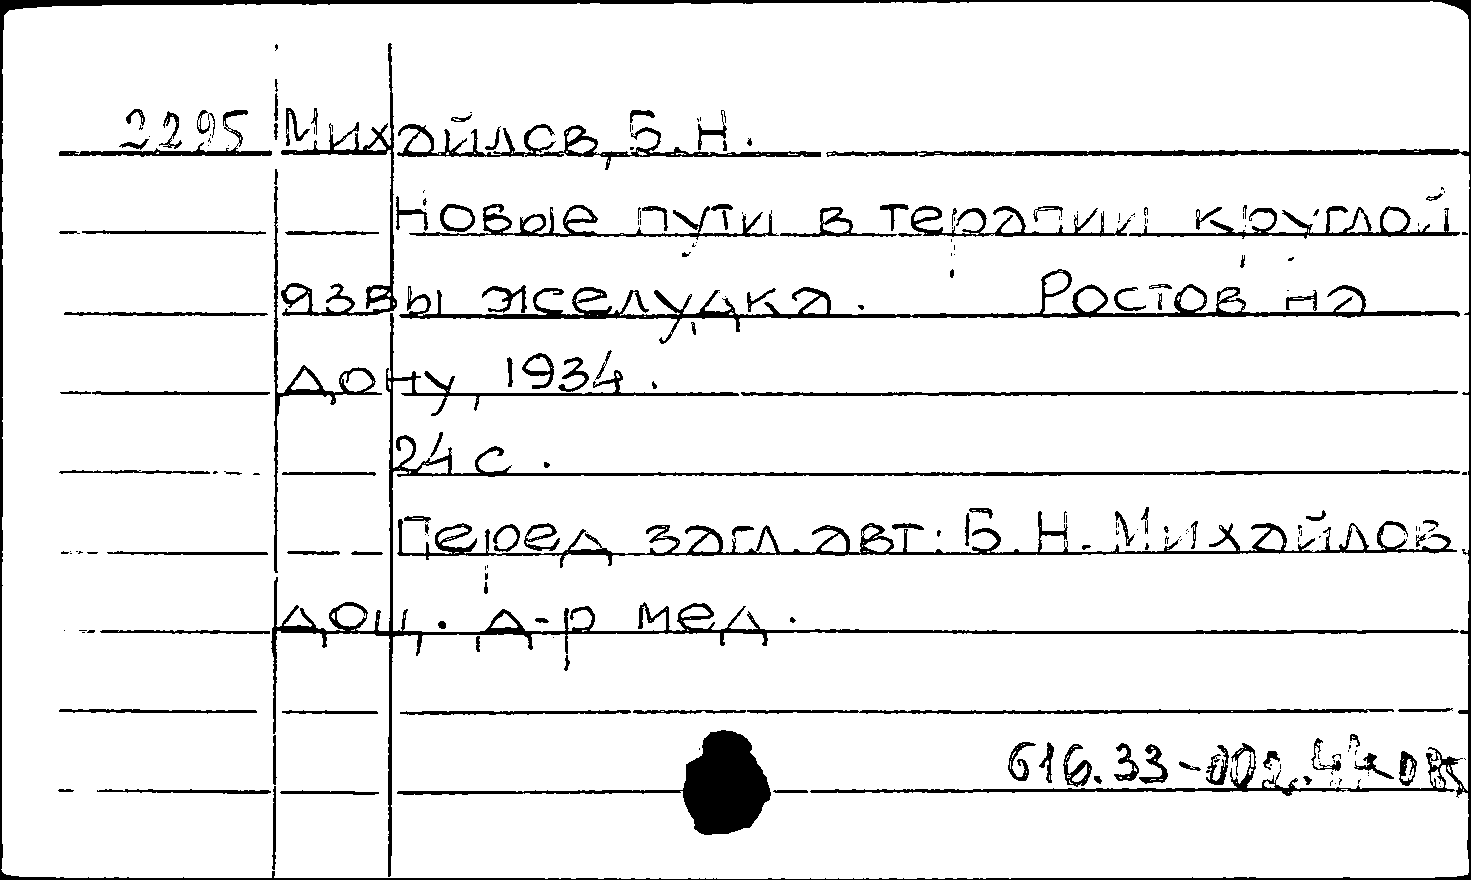 2295 Михайлов, Б. Н.
Новые пути в терапии круглой
язвы желудка. Ростов на
Дону, 1934.
24 с.
Перед загл. авт: Б. Н. Михайлов
доц. д-р мед.
616.33-002.44-085